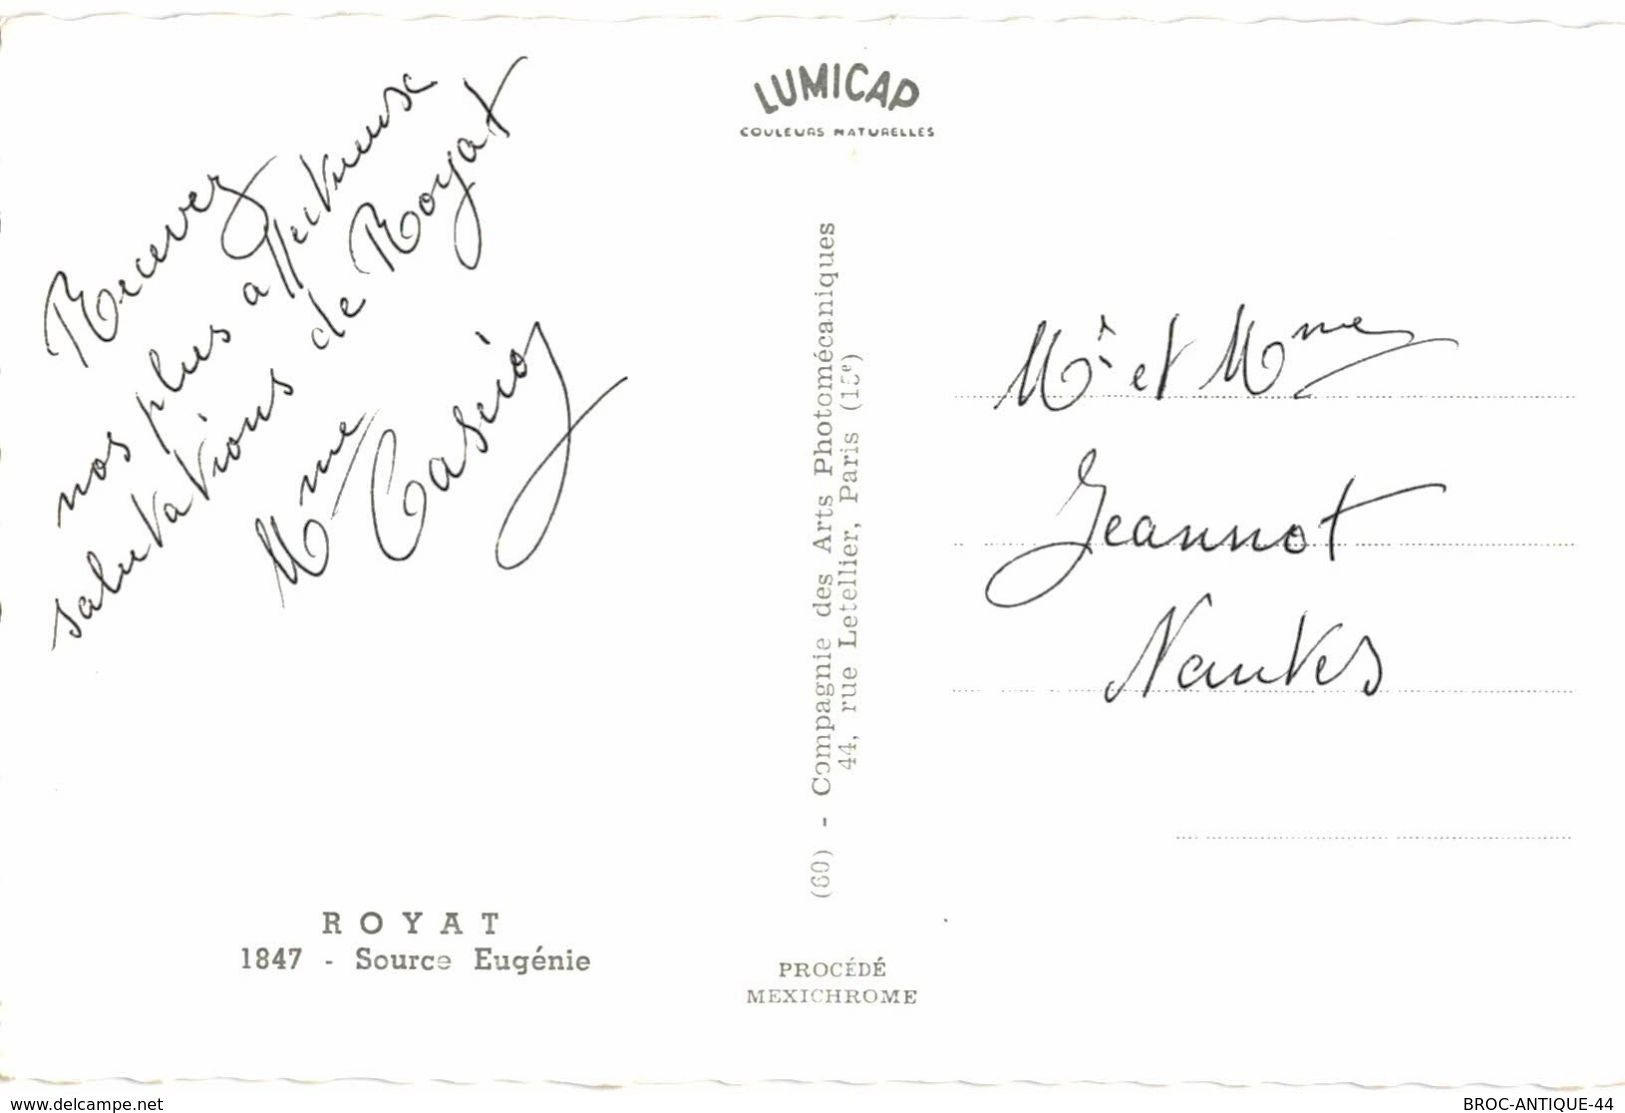 Recevez
nos plus affectueuses
salutations de Royat
Mme
LUMICAP
COULEURS NATURELLES
(60) - Compagnie des Arts Photomécaniques
44, rue Letellier, Paris (15e)
Mr et Mme
Jeannot
Nantes
ROYAT
1847 - Source Eugénie
PROCÉDÉ
MEXICHROME
www.delcampe.net
BROC-ANTIQUE-44